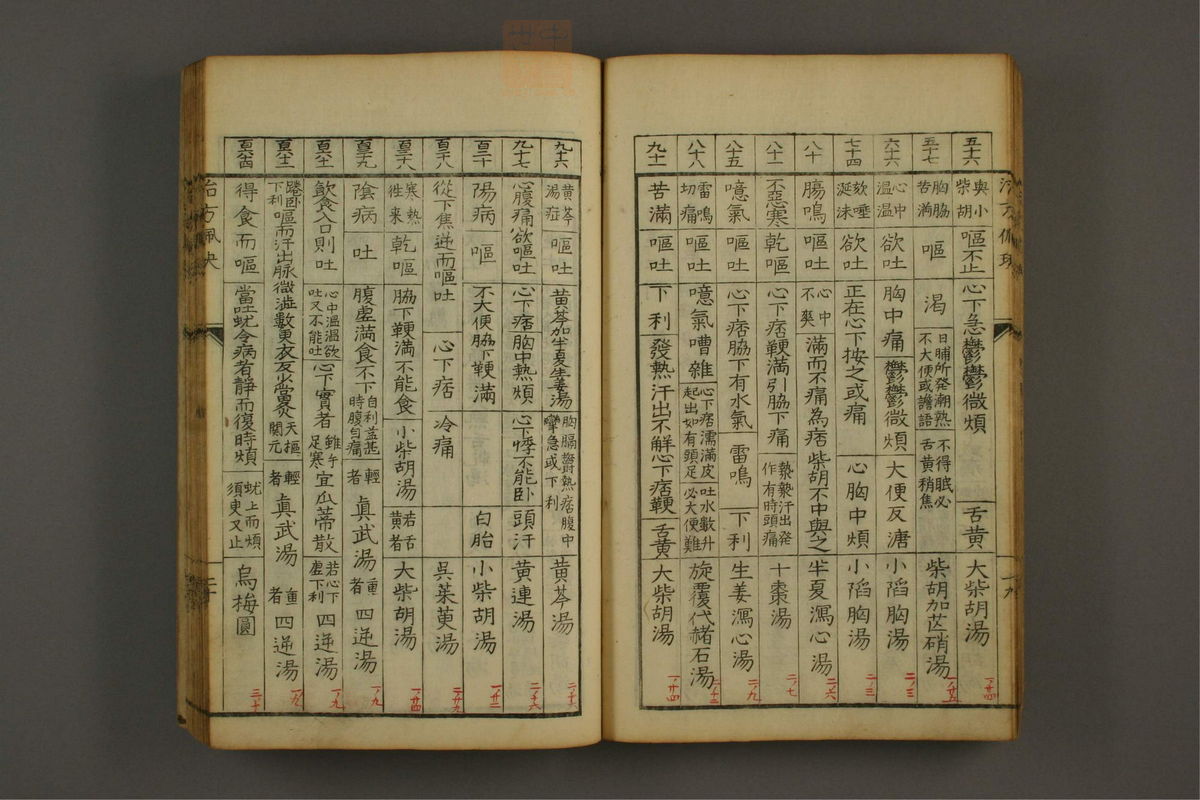 五十六 與小柴胡 嘔不止 心下急鬱鬱微煩 舌黃 大柴胡湯
五十七 胸脇苦滿 嘔 渴 日晡所發潮熱不大便或譫語 不得眠必舌黃稍焦 柴胡加芒硝湯
六十六 心中溫溫 欲吐 胸中痛 鬱鬱微煩 大便反溏 小陷胸湯 二ノ三
七十四 欬唾涎沫 欲吐 正在心下按之或痛 心胸中煩 小陷胸湯 二ノ三
八十 腸鳴 嘔吐 心中不爽 滿而不痛為痞 柴胡不中與之 半夏瀉心湯 二ノ六
八十一 不惡寒 乾嘔 心下痞鞕滿引脇下痛 漐漐汗出發作有時頭痛 十棗湯 二ノ七
八十五 噫氣 嘔吐 心下痞脇下有水氣 雷鳴 下利 生姜瀉心湯 二ノ九
八十八 雷鳴切痛 嘔吐 噫氣嘈雜 心下痞濡滿皮起出如有頭足 吐水數升必大便難 旋覆代赭石湯 二ノ十三
九十一 苦滿 嘔吐 下利 發熱汗出不解心下痞鞕 舌黃 大柴胡湯
九十六 黃芩湯症 嘔吐 黃芩加半夏生姜湯 胸膈鬱熱痞腹中攣急或下利 黃芩湯 二ノ十六
九十七 心腹痛欲嘔吐 心下痞胸中熱煩 心下悸不能臥 頭汗 黃連湯 二ノ十六
百二十 陽病 嘔 不大便脇下鞕滿 白胎 小柴胡湯
從下焦逆而嘔吐 心下痞 冷痛 吳茱萸湯
寒熱往来 乾嘔 脇下鞕滿不能食 小柴胡湯 若舌黃者 大柴胡湯
陰病 吐 腹虛滿食不下 自利益甚時腹自痛 輕者 眞武湯 重者 四逆湯 一ノ九
飲食入口則吐 心中溫溫欲吐又不能吐 心下實者 雖手足寒 宜瓜蒂散 若心下虛下利 四逆湯 一ノ九
踡臥下利 嘔而汗出脉微澁數更衣反少當灸 天樞關元 輕者 眞武湯 重者 四逆湯 一ノ九
得食而嘔 當吐蚘令病者靜而復時煩 蚘上而煩須臾又止 烏梅圓 三ノ十